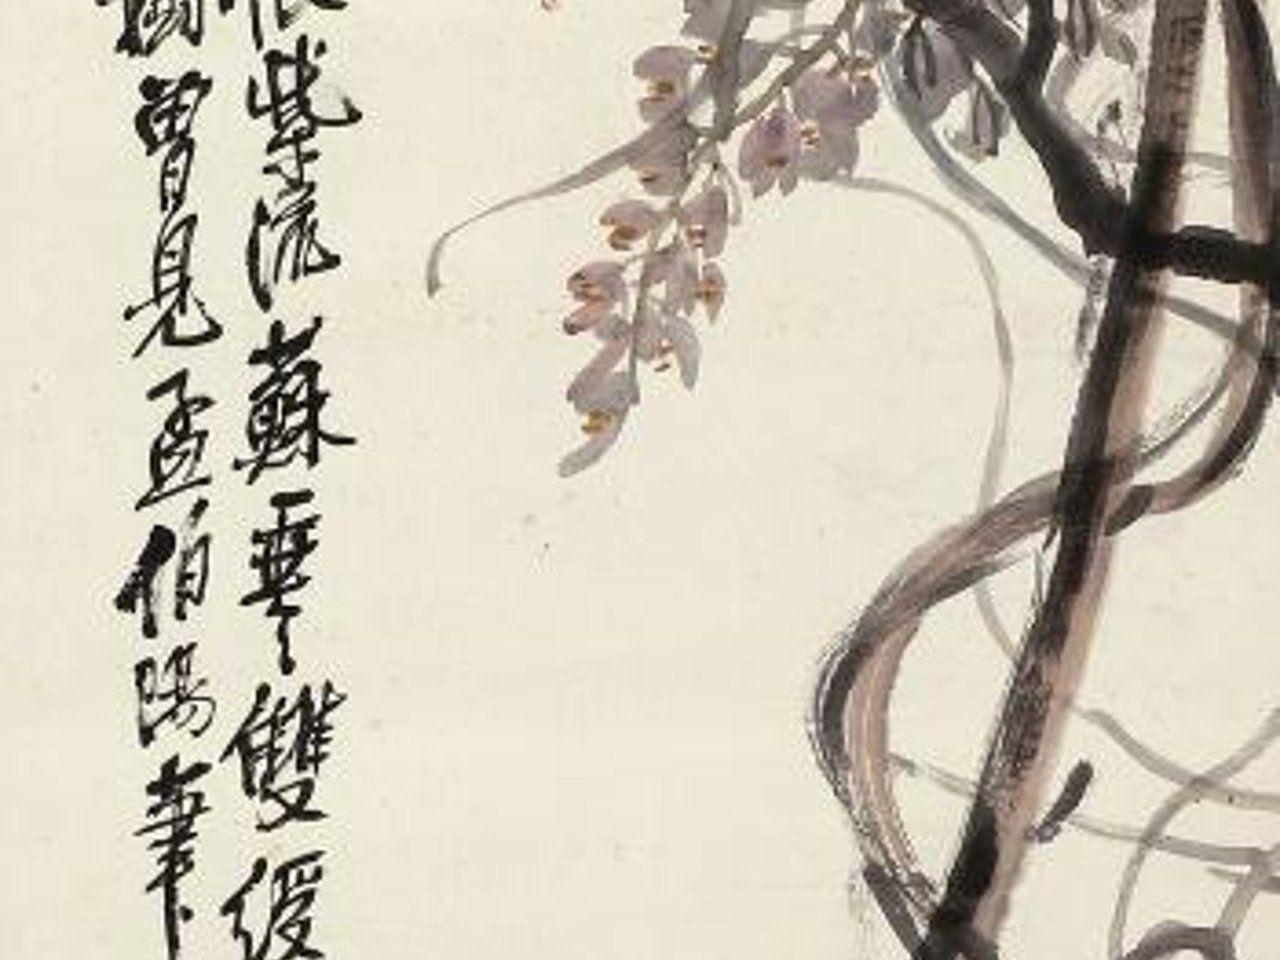 紫流蘇垂雙綬
曾見孟伯陽筆